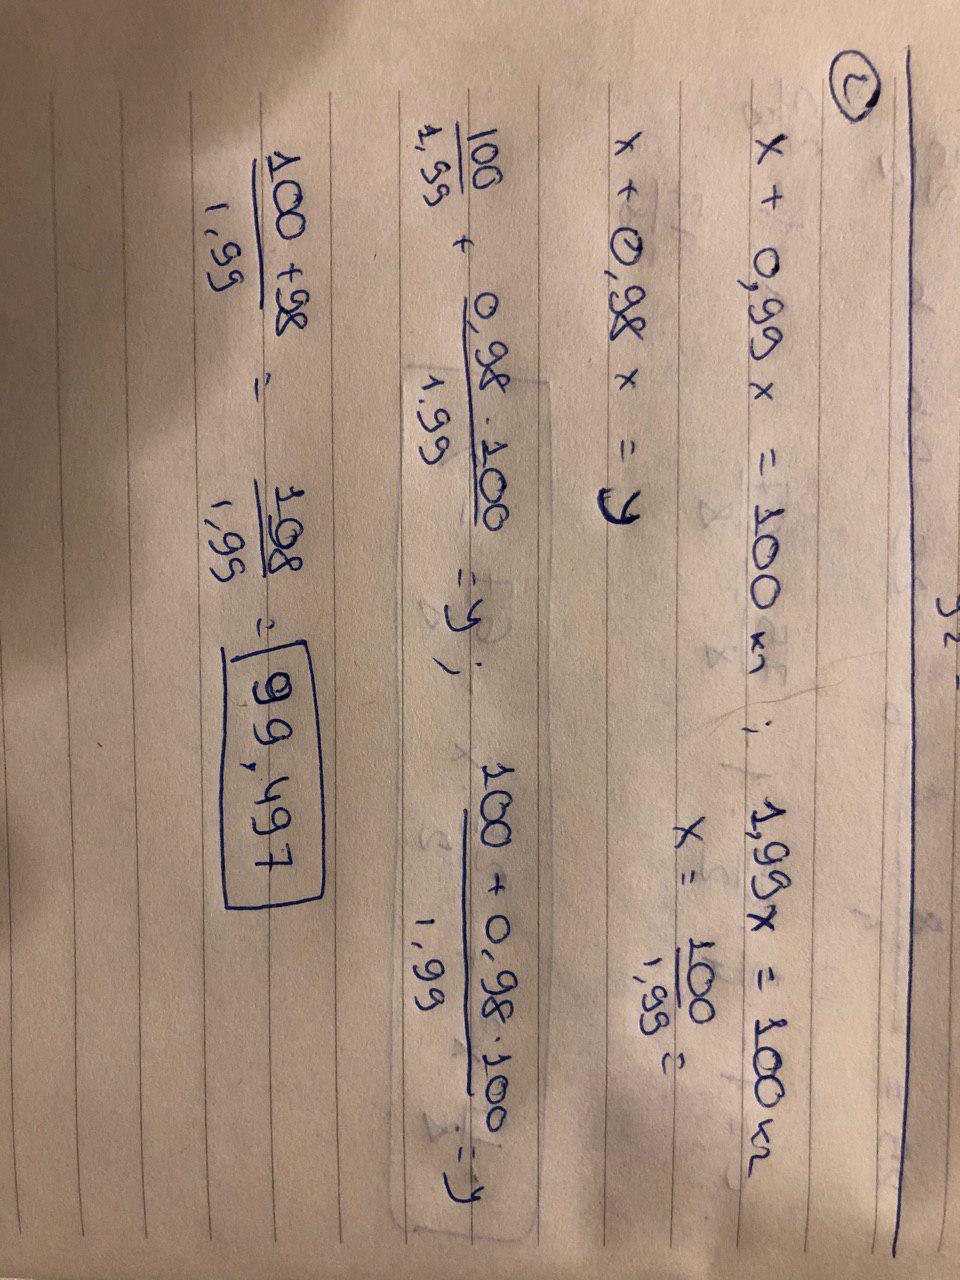 x + 0,99x = 100 кг ; 1,99x = 100 кг
x = 100/1,99 =
x + 0,98 x = y
100/1,99 + 0,98 · 100/1.99 = y ; 100 + 0,98 · 100/1,99 = y
100 + 98/1,99 = 198/1,99 = 99,497